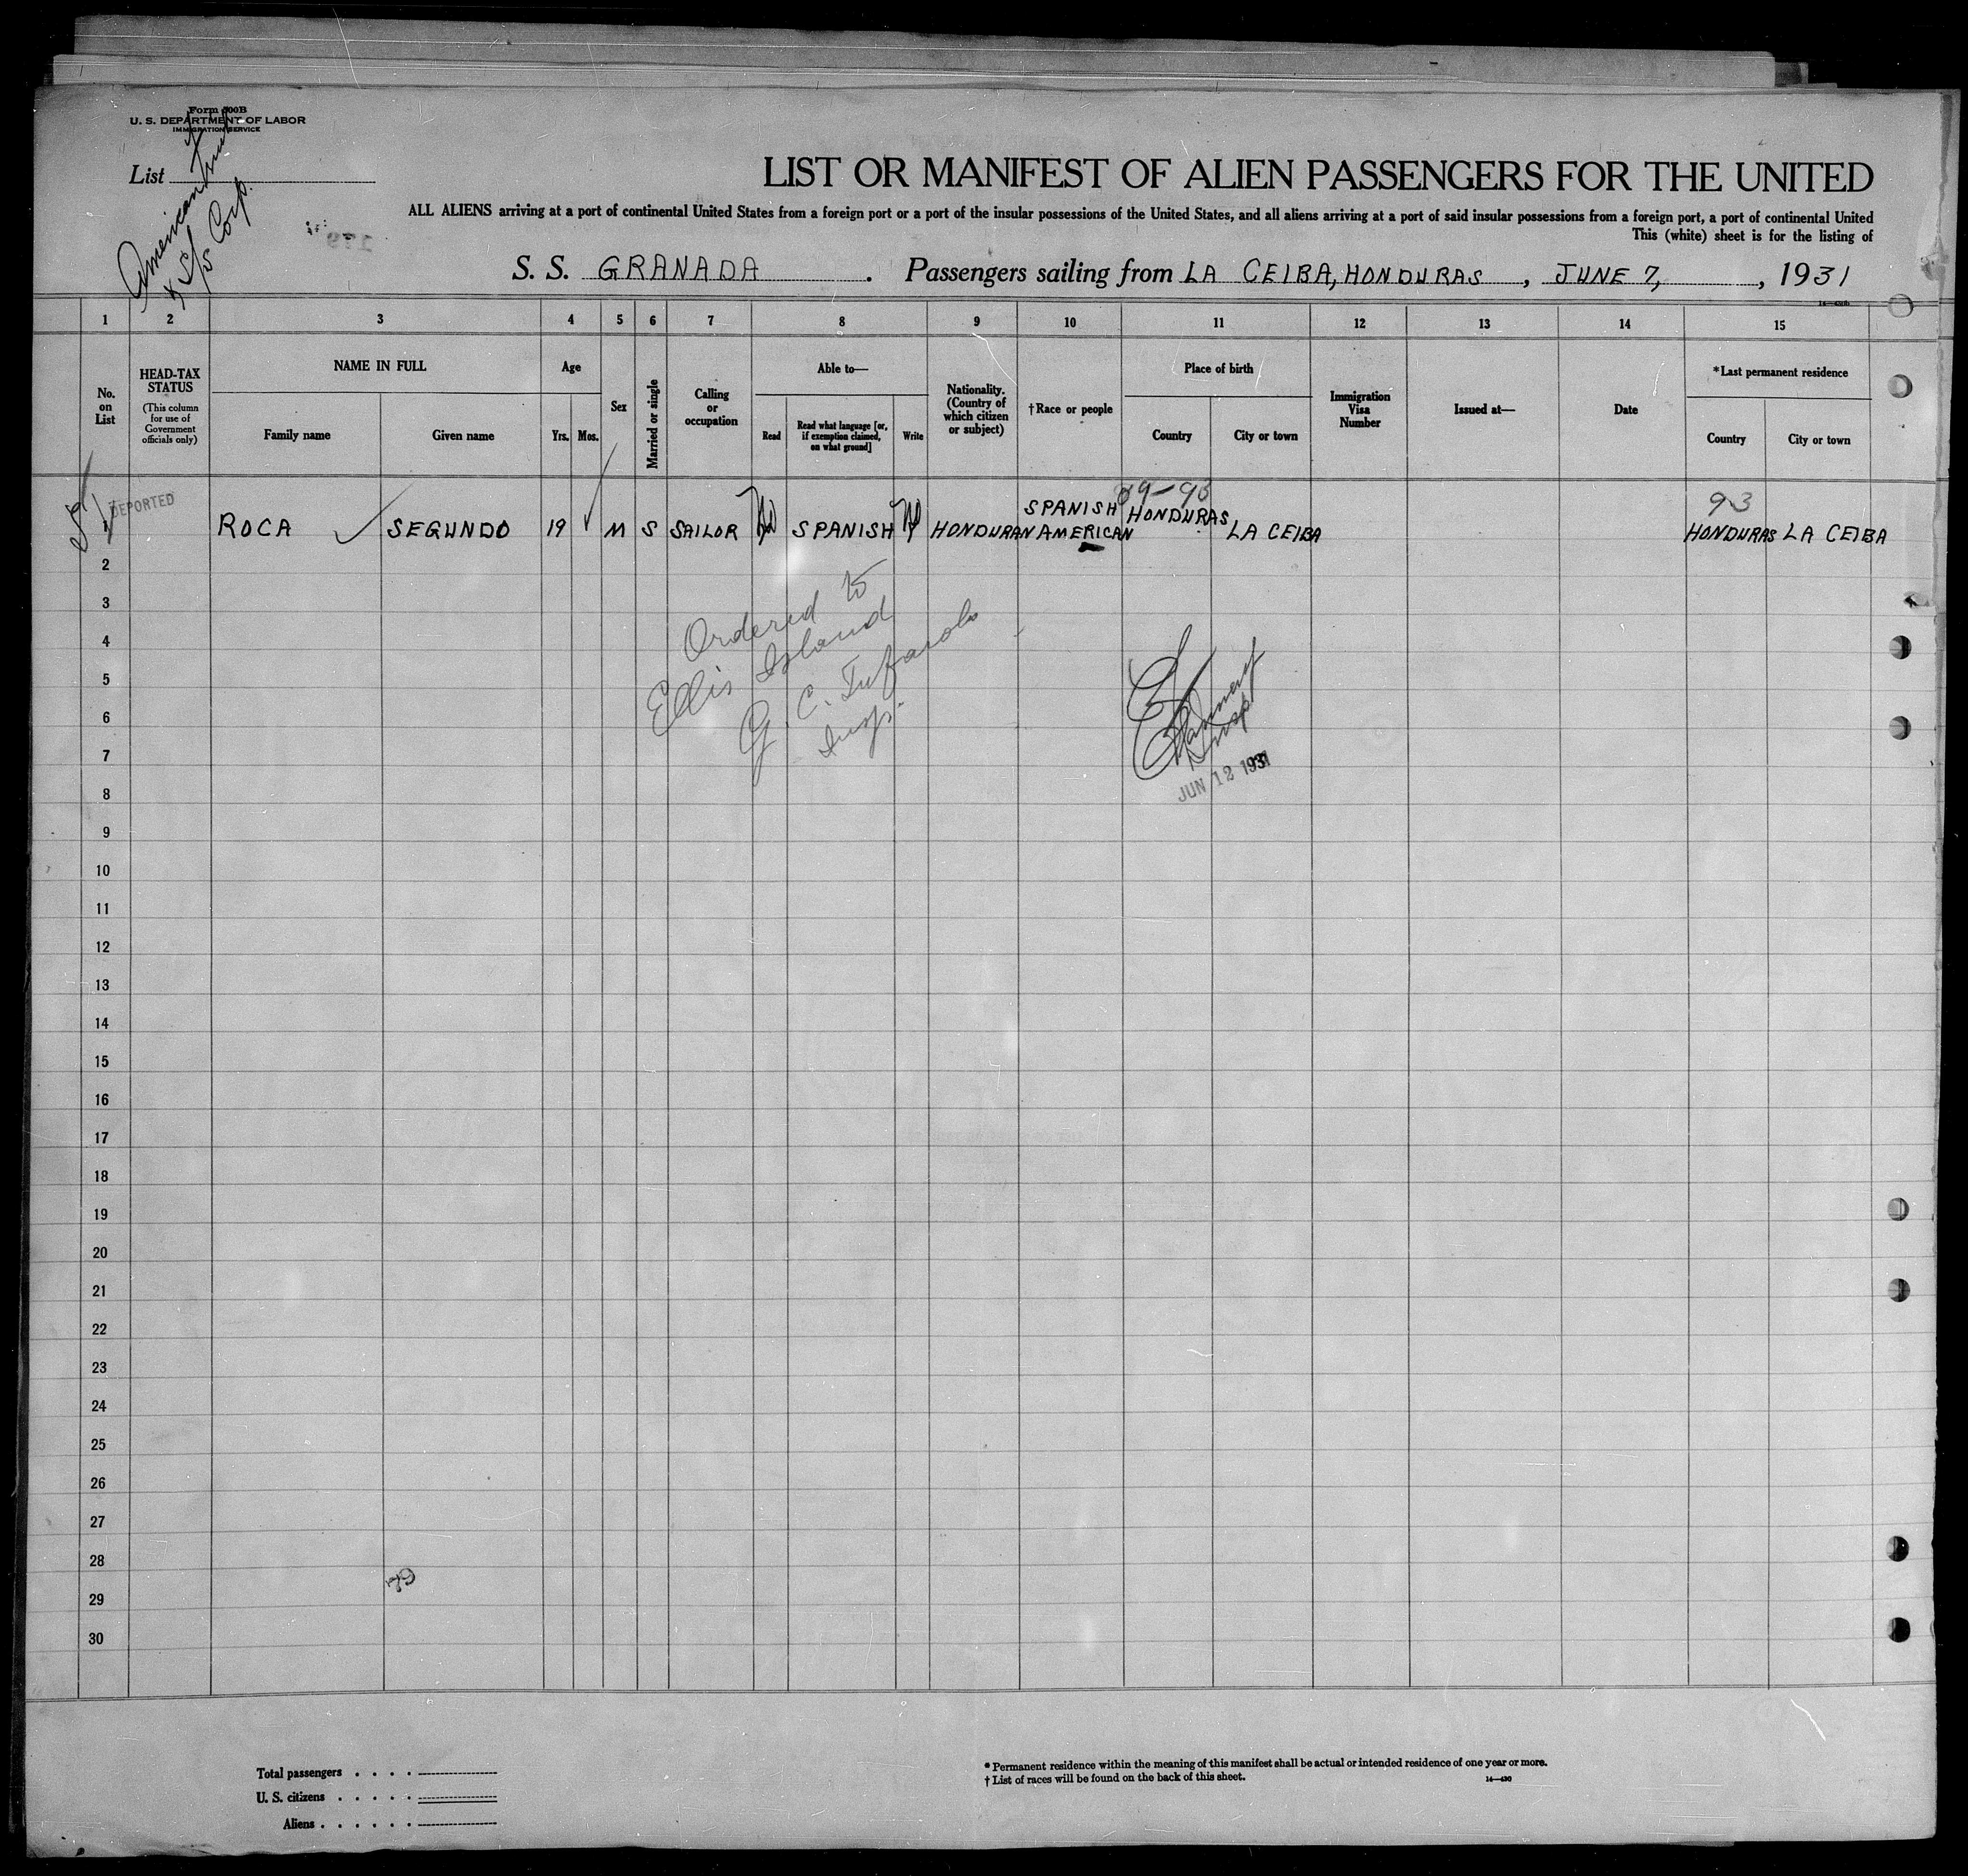 Form 500B
U. S. DEPARTMENT OF LABOR
IMMIGRATION SERVICE
List
American Fruit
& S/S Corp.
179
LIST OR MANIFEST OF ALIEN PASSENGERS FOR THE UNITED
ALL ALIENS arriving at a port of continental United States from a foreign port or a port of the insular possessions of the United States, and all aliens arriving at a port of said insular possessions from a foreign port, a port of continental United
This (white) sheet is for the listing of
S. S. GRANADA. Passengers sailing from LA CEIBA, HONDURAS, JUNE 7, , 1931
1 2 3 4 5 6 7 8 9 10 11 12 13 14 15
No. on List
HEAD-TAX STATUS
(This column for use of Government officials only)
NAME IN FULL
Family name Given name
Age
Yrs. Mos.
Sex
Married or single
Calling or occupation
Able to—
Read
Read what language [or, if exemption claimed, on what ground]
Write
Nationality. (Country of which citizen or subject)
†Race or people
Place of birth
Country City or town
Immigration Visa Number
Issued at—
Date
*Last permanent residence
Country City or town
DEPORTED
ROCA SEGUNDO 19 M S SAILOR SPANISH HONDURAN SPANISH AMERICAN HONDURAS LA CEIBA 93 HONDURAS LA CEIBA
2
3
4
5
6
7
8
9
10
11
12
13
14
15
16
17
18
19
20
21
22
23
24
25
26
27
28
29
30
Ordered to
Ellis Island
G. C.
Insp.
Insp
JUN 12 1931
179
Total passengers . . . .
U. S. citizens . . . . .
Aliens . . . . . .
* Permanent residence within the meaning of this manifest shall be actual or intended residence of one year or more.
† List of races will be found on the back of this sheet.
14—430